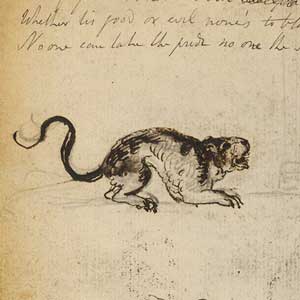 Whether tis good or evil none's to bl
No one can take the pride no one the